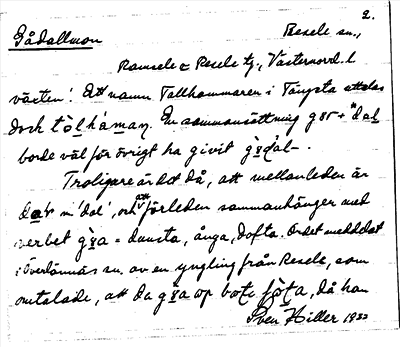 2.
Gådallmon Resele sn.,
Ramsele o Resele tg., Västernorrl. l
växten! Ett namn Tallhammaren i Tängsta uttalas
dock tòlháman. En sammansättning går + *dal
borde väl för övrigt ha givit
Troligare är det då, att mellanleden är
m 'dal', och att förleden sammanhänger med
verbet = dunsta, ånga, dofta. Ordet meddelat
i Överlännäs sn. av en yngling från Resele, som
omtalade, att da op då han
Sven Hiller 1933